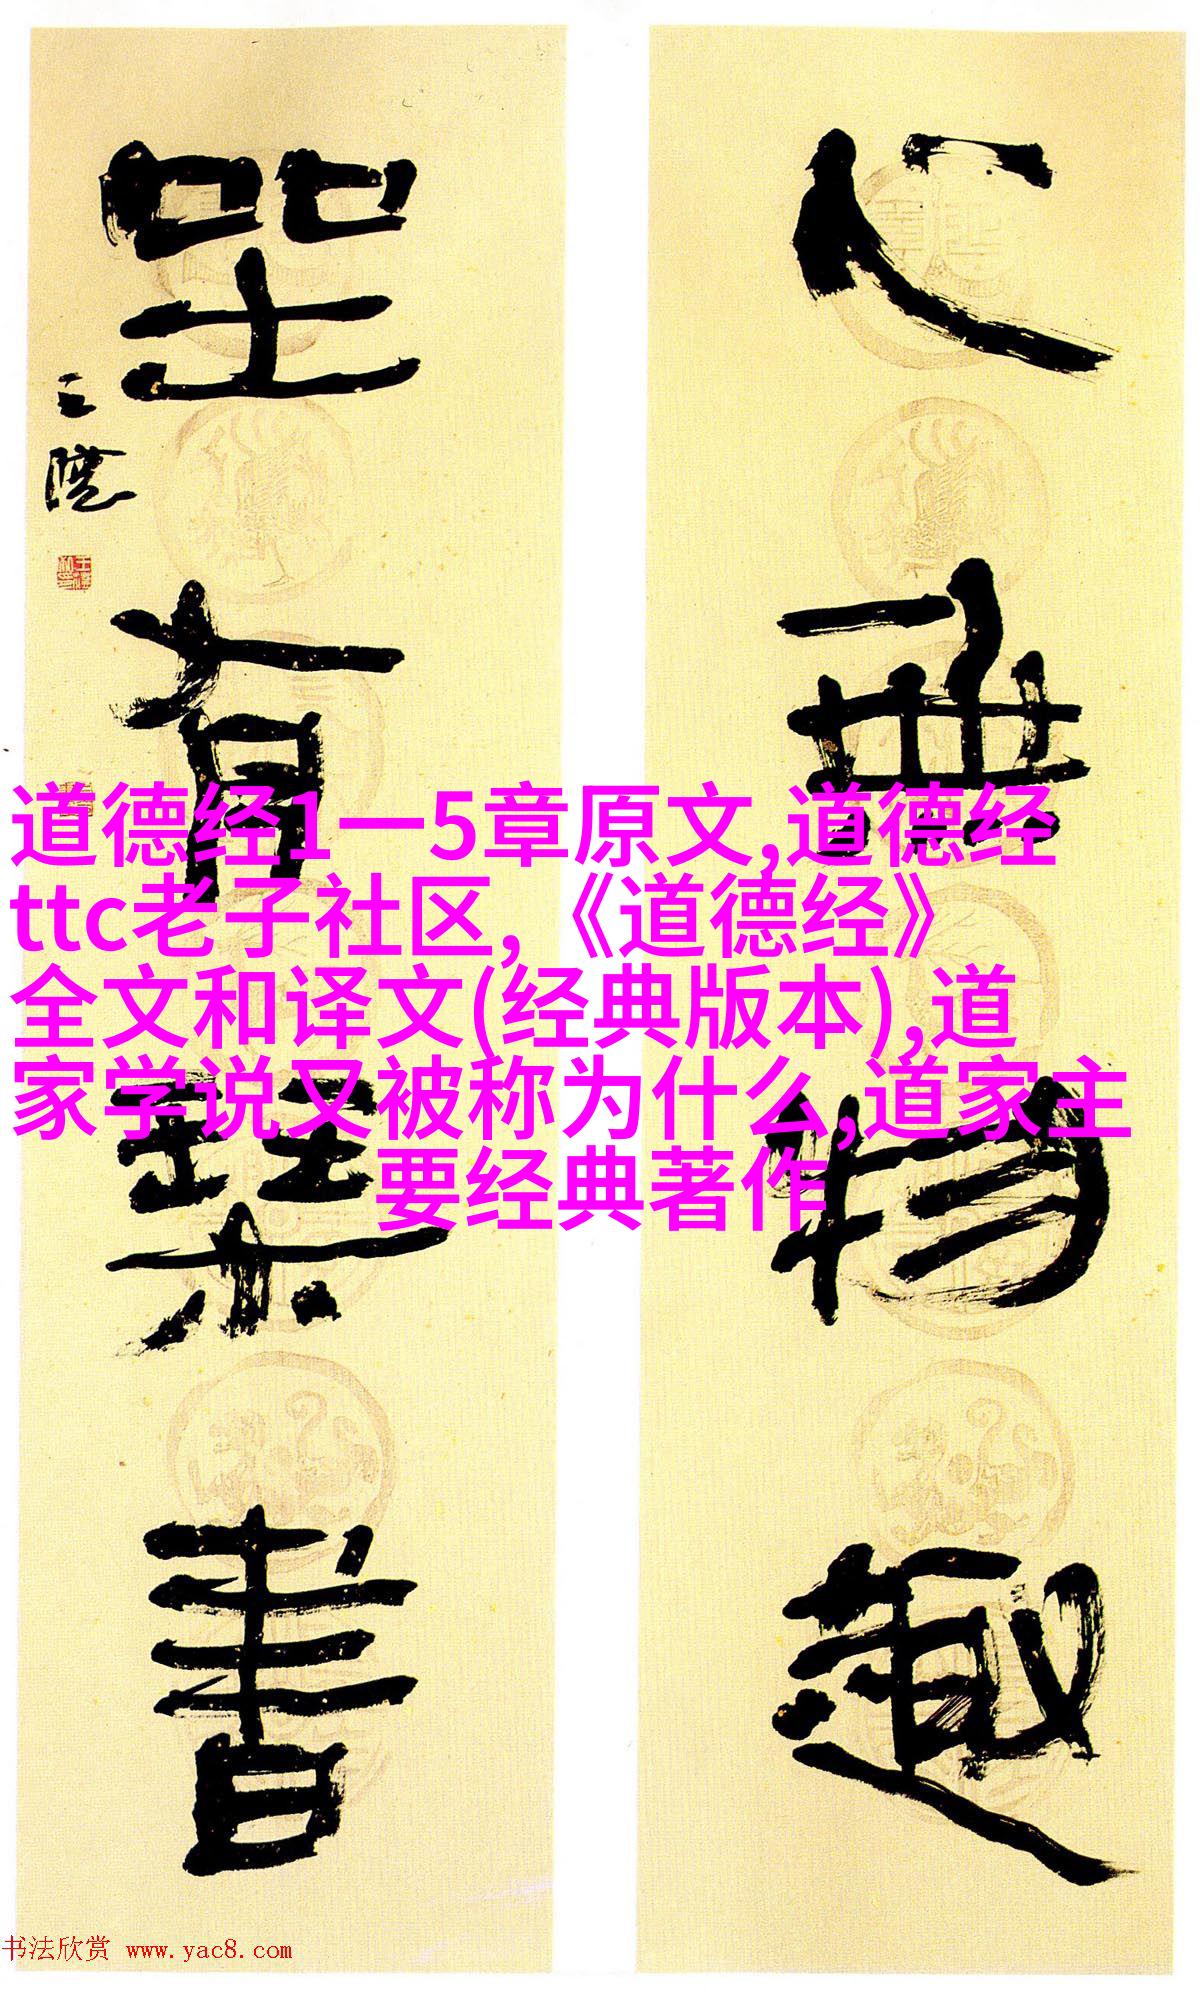 心無物趣
坐有琴書
道德经1一5章原文,道德经
ttc老子社区,《道德经》
全文和译文(经典版本),道
家学说又被称为什么,道家主
要经典著作
书法欣赏 www.yac8.com